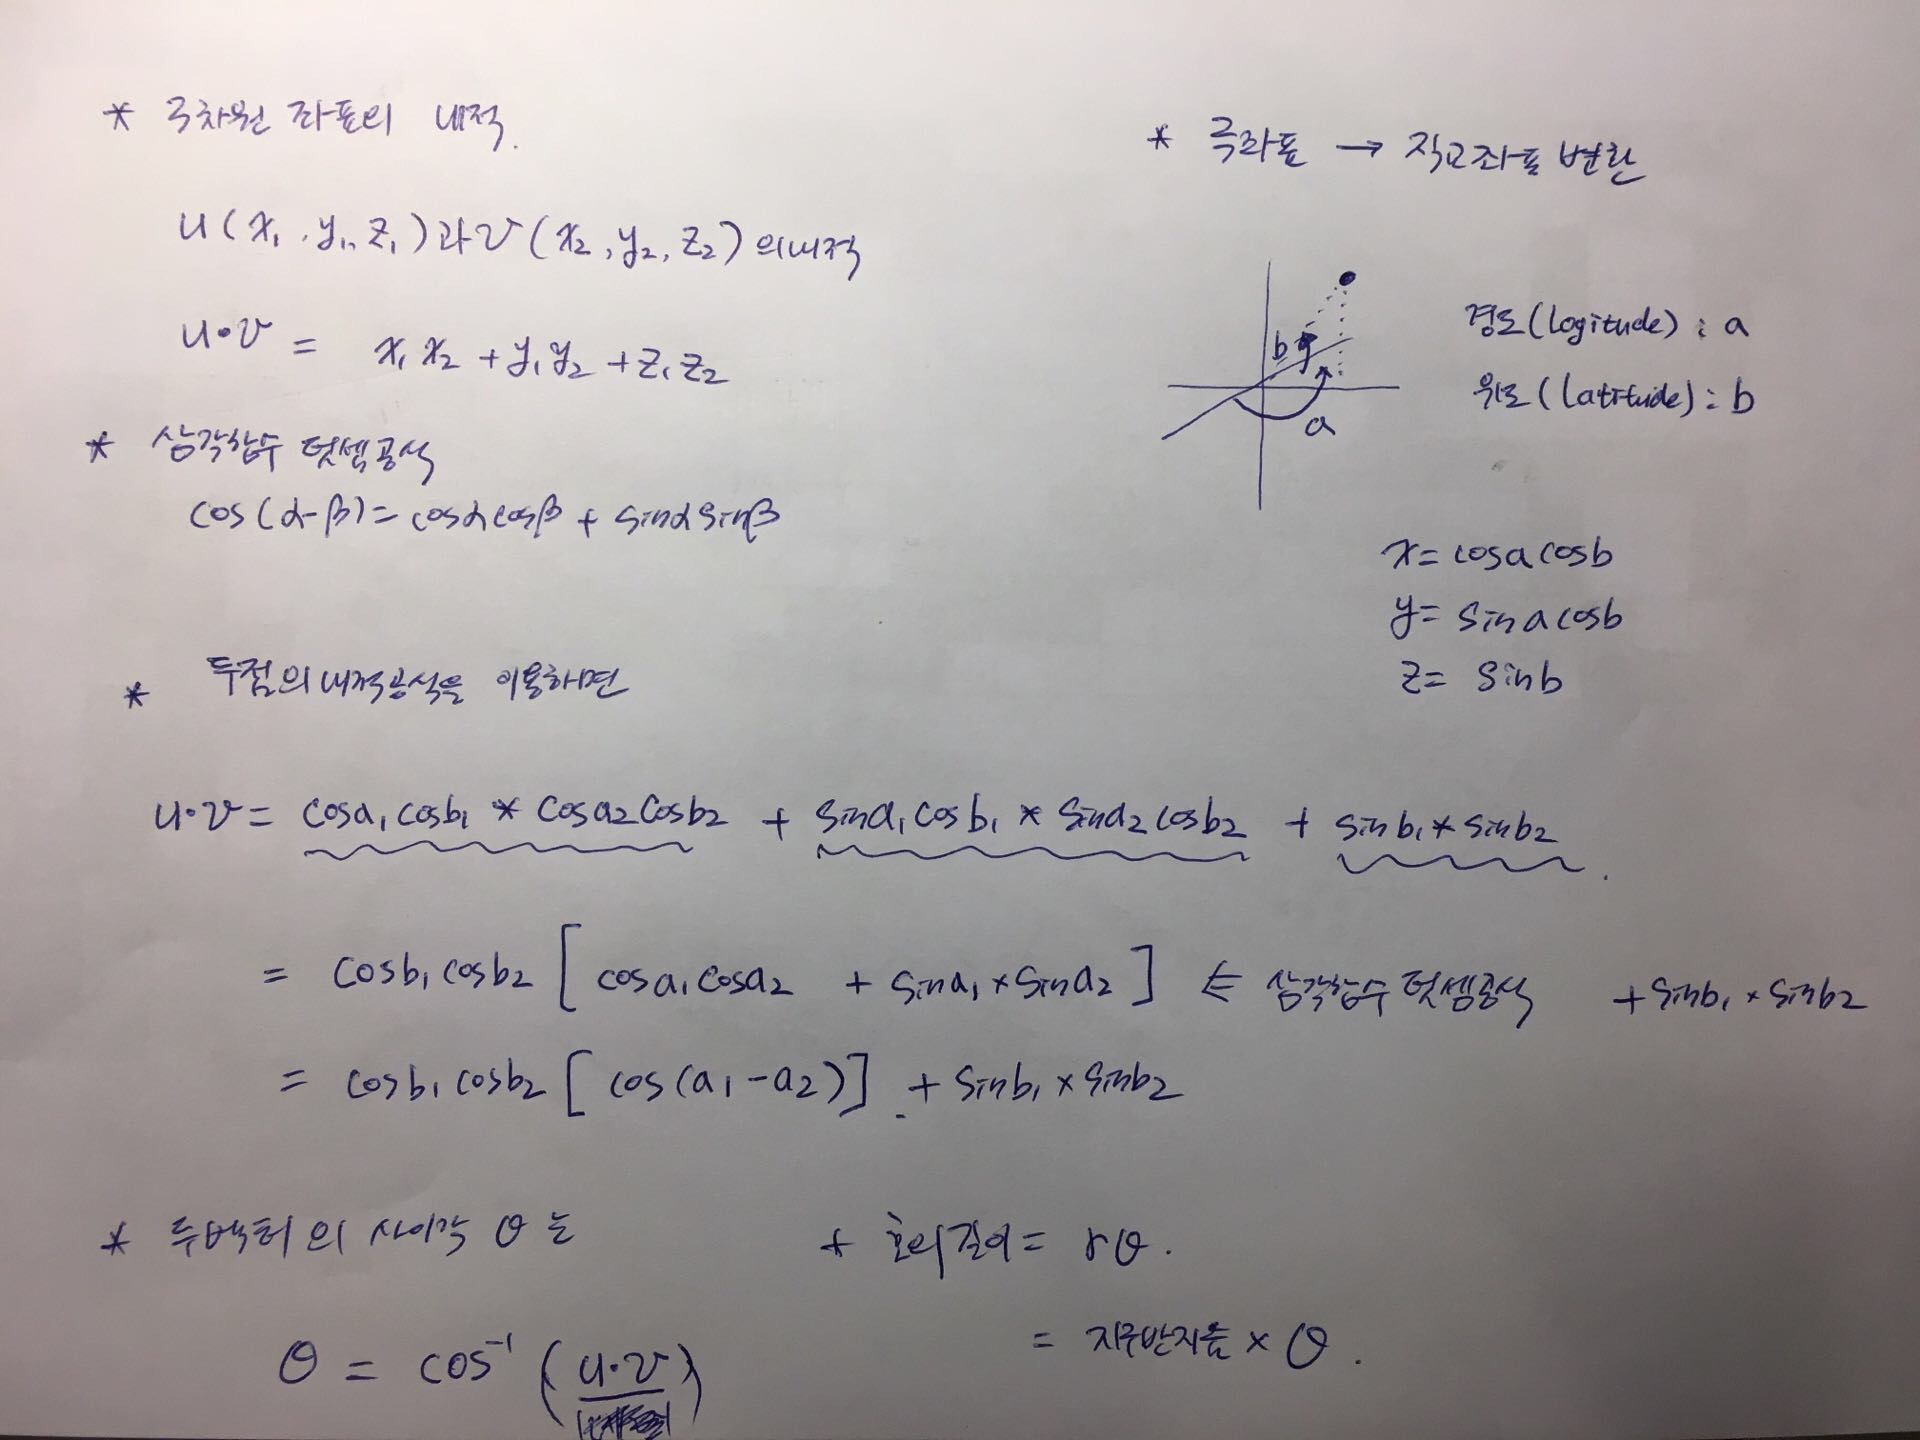 * 극차원 좌표의 내적.
u(x₁, y₁, z₁)과 v(x₂, y₂, z₂)의 내적
u·v = x₁x₂ + y₁y₂ + z₁z₂
* 삼각함수 덧셈공식
cos(α-β) = cosαcosβ + sinαsinβ
* 극좌표 → 직교좌표 변환
b
a
경도(logitude) : a
위도(latitude) : b
x = cosa cosb
y = sina cosb
z = sinb
* 두점의 내적공식을 이용하면
u·v = cosa₁cosb₁ * cosa₂cosb₂ + sina₁cosb₁ * sina₂cosb₂ + sinb₁ * sinb₂.
= cosb₁cosb₂ [ cosa₁cosa₂ + sina₁ × sina₂ ] ⇐ 삼각함수 덧셈공식 + sinb₁ × sinb₂
= cosb₁cosb₂ [ cos(a₁-a₂) ] + sinb₁ × sinb₂
* 두벡터의 사이각 θ는
θ = cos⁻¹ (u·v)
* 호의길이 = rθ.
= 지구반지름 × θ.